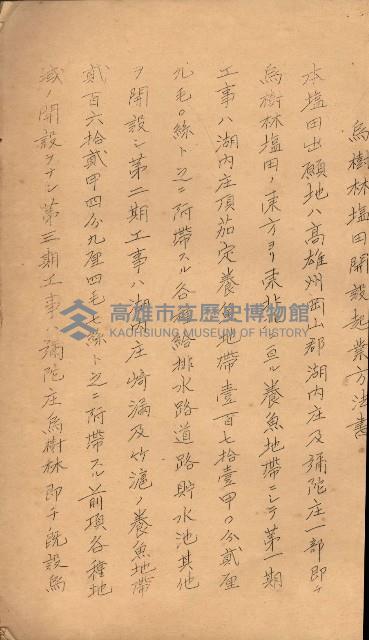 烏樹林塩田開設起業方法書
本塩田出願地ハ高雄州岡山郡湖内庄及彌陀庄一部即チ
烏樹林塩田ノ東方ヨリ東北ニ亘ル養魚地帶ニシテ第一期
工事ハ湖内庄頂茄定養魚地帶壹百七拾壹甲〇分貳厘
九毛〇絲ト之ニ附帶スル各種給排水路道路貯水池其他
ヲ開設シ第二期工事ハ湖内庄崎漏及竹滬ノ養魚地帶
貳百六拾貳甲四分九厘四毛七絲ト之ニ附帶スル前項各種地
域ノ開設ヲナシ第三期工事ハ彌陀庄烏樹林即チ既設烏
高雄市立歷史博物館
KAOHSIUNG MUSEUM OF HISTORY